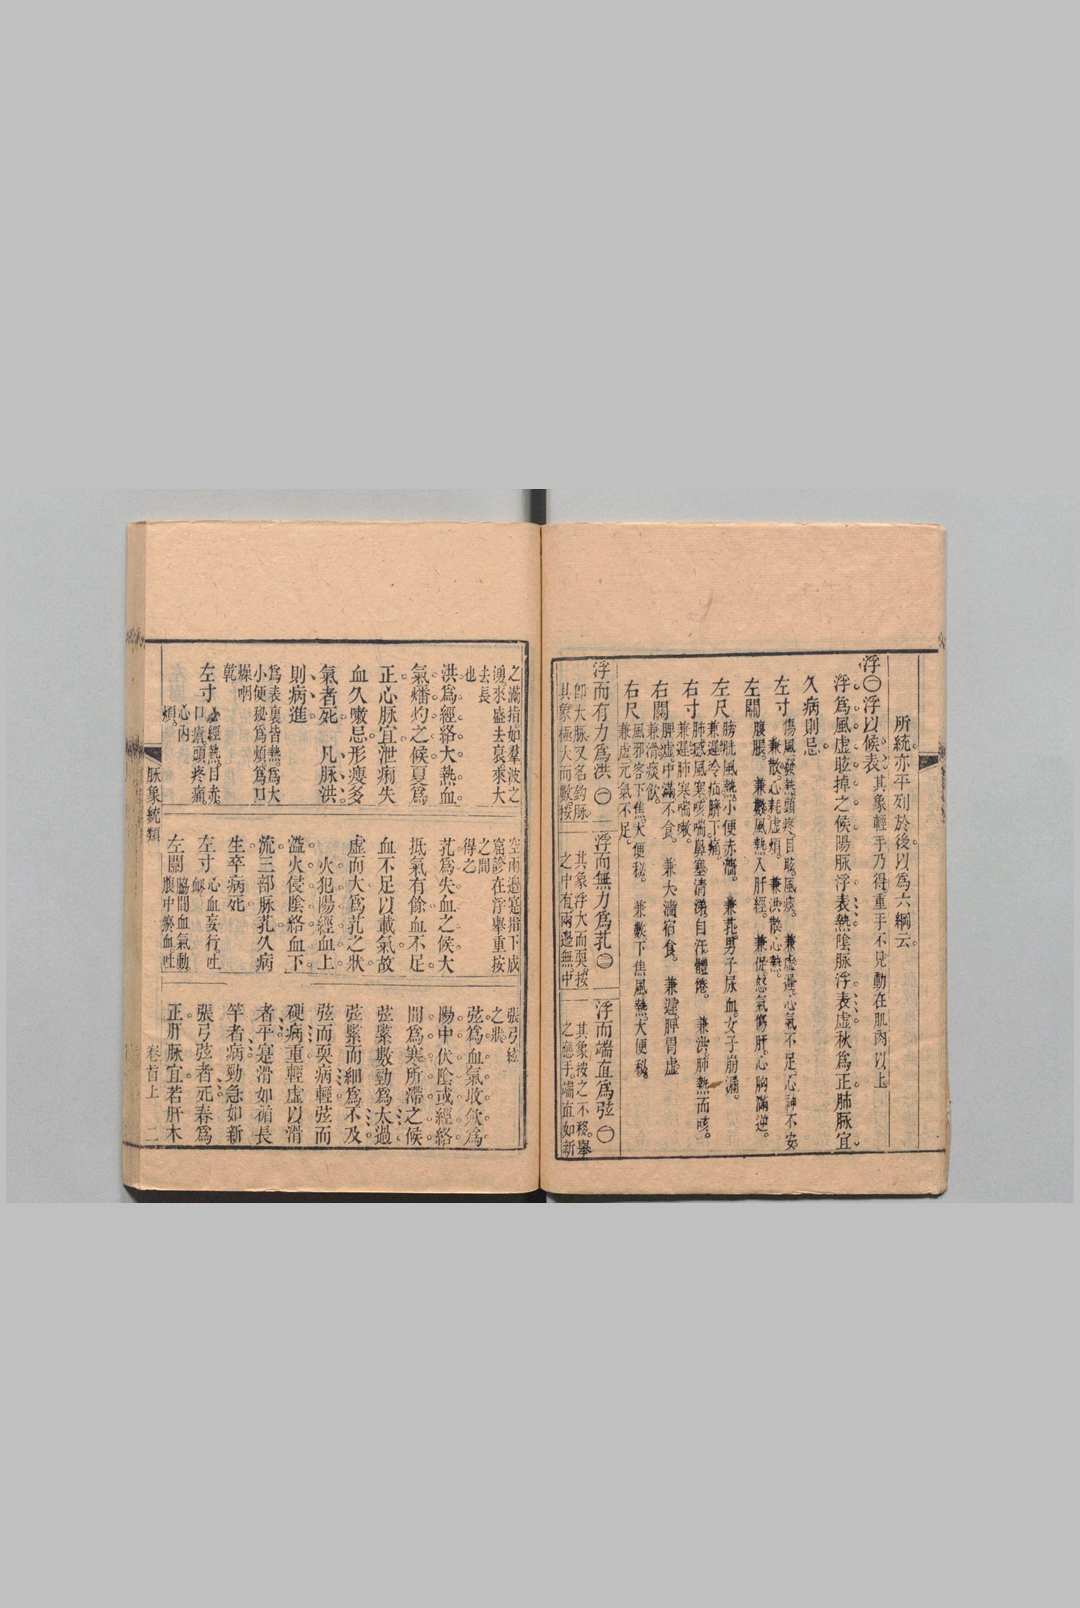 所統亦平列於後以為六綱云
浮〇浮以候表其象輕手乃得重手不見動在肌肉以上
浮為風虛眩掉之候陽脈浮表熱陰脈浮表虛秋為正肺脈宜
久病則忌
左寸傷風發熱頭疼目眩風痰。兼虛遲心氣不足心神不安
兼散。心耗虛煩。兼洪散心熱。
左關腹脹。兼數風熱入肝經。兼促怒氣傷肝心胸滿逆。
左尺膀胱風熱。小便赤濇。兼芤男子尿血。女子崩漏。
兼遲冷疝臍下痛。
右寸肺感風寒咳喘鼻塞清涕自汗體倦。兼洪肺熱而咳。
兼遲肺寒喘嗽。
右關脾虛中滿不食。兼大濇宿食。兼遲脾胃虛
兼滑痰飲。
右尺風邪客下焦大便秘。兼數下焦風熱大便秘。
兼虛元氣不足。
浮而有力為洪〇
即大脈又名鈎脈
其象極大而數按
浮而無力為芤〇
其象浮大而耎按
之中有兩邊無中
浮而端直為弦〇
其象按之不移。舉
之應手。端直如新
之滿指如羣波之
湧來盛去衰來大
去長
也
洪為經絡大熱血
氣燔灼之候夏為
正心脈宜泄痢失
血久嗽忌形瘦多
氣者死 凡脈洪
則病進
為表裏皆熱為大
小便秘為煩為口
燥咽
乾
左寸心經熱目赤
口瘡頭疼痛
心內
煩。
空雨過寬指下成
窟診在浮舉重按
之間
得之
芤為失血之候大
抵氣有餘血不足
血不足以載氣故
虛而大為芤之狀
火犯陽經血上
溢火侵陰絡血下
流三部脈芤久病
生卒病死
左寸心血妄行吐
衂
左關脇間血氣動
腹中瘀血吐
張弓絃
之狀。
弦為血氣收斂為
陽中伏陰或經絡
間為寒所滯之候
弦緊數勁為太過
弦緊而細為不及
弦而耎病輕弦而
硬病重輕虛以滑
者平寔滑如循長
竿者病勁急如新
張弓弦者死春為
正肝脈宜若肝木
脈象統類
卷首上